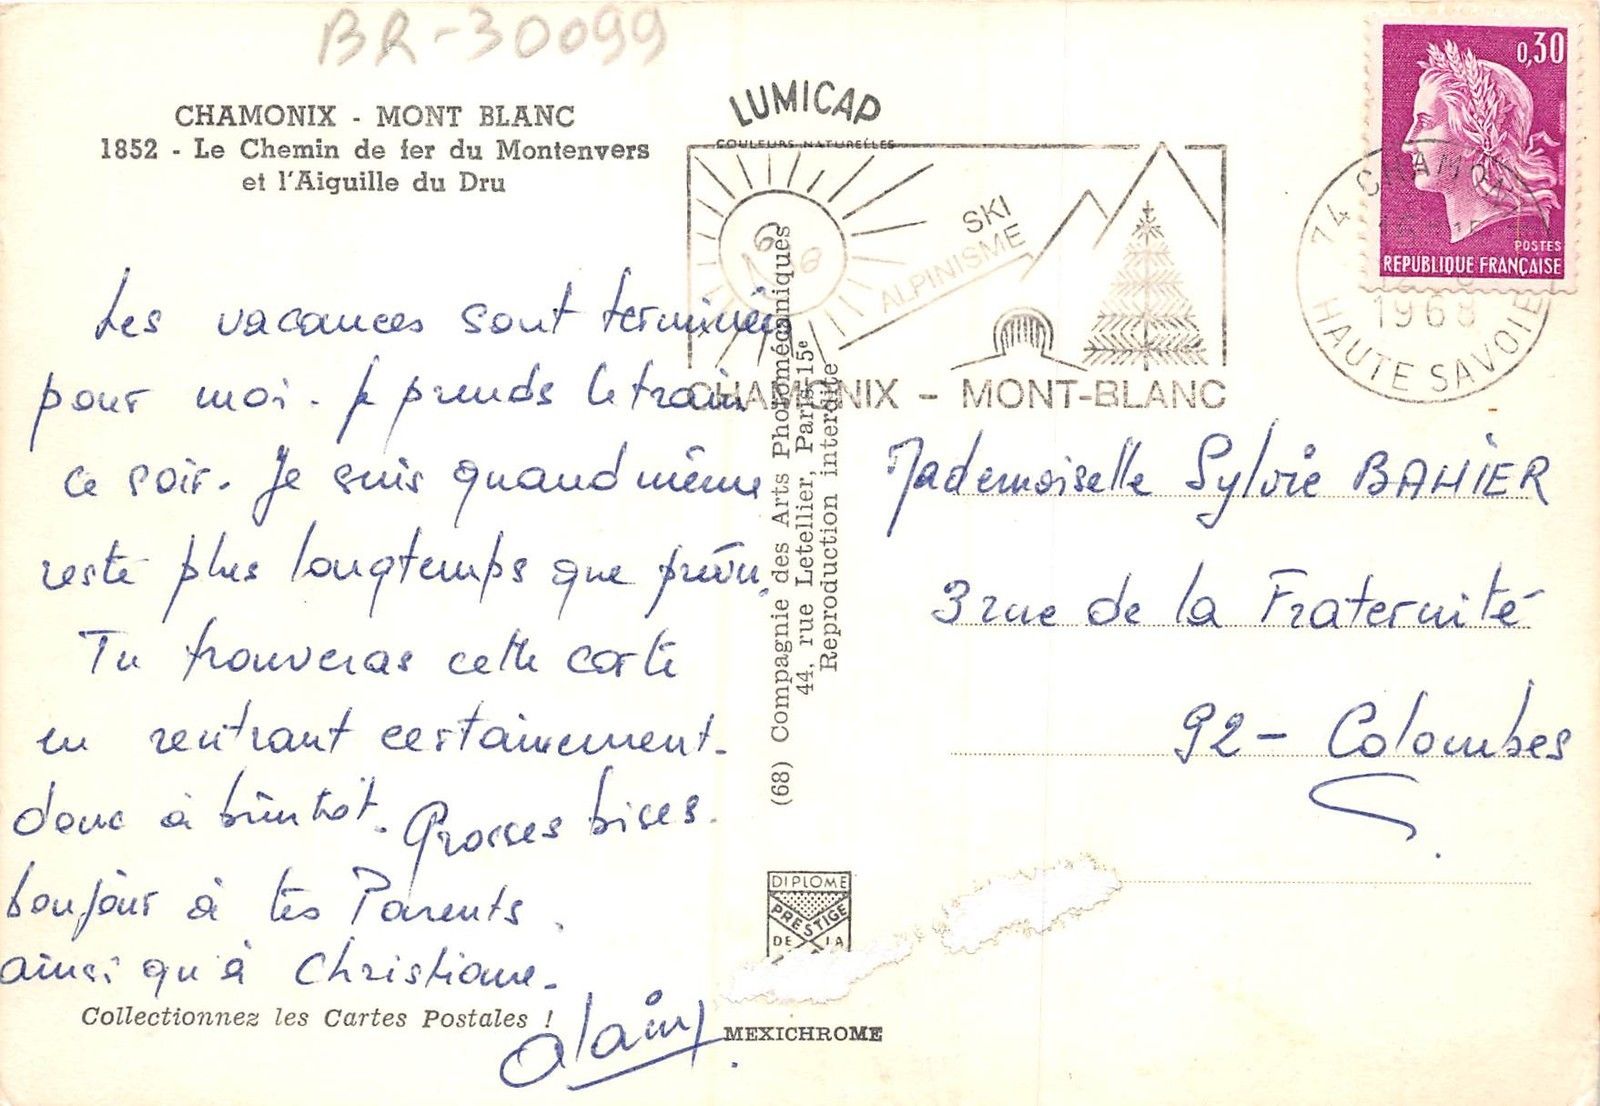 BR-30099
CHAMONIX - MONT BLANC
1852 - Le Chemin de fer du Montenvers
et l'Aiguille du Dru
LUMICAP
COULEURS NATURELLES
SKI
ALPINISME
CHAMONIX - MONT-BLANC
0,30
POSTES
REPUBLIQUE FRANÇAISE
74 CHAMONIX
1968
HAUTE SAVOIE
Les vacances sont terminées
pour moi. je prends le train
ce soir. Je suis quand même
resté plus longtemps que prévu.
Tu trouveras cette carte
en rentrant certainement.
donc à bientôt. Grosses bises.
bonjour à tes Parents.
ainsi qu'à Christiane.
alain
(68) Compagnie des Arts Photomécaniques
44, rue Letellier, Paris-15e
Reproduction interdite
Mademoiselle Sylvie BAHIER
3 rue de la Fraternité
92 - Colombes
DIPLOME
PRESTIGE
DE LA
Collectionnez les Cartes Postales !
MEXICHROME